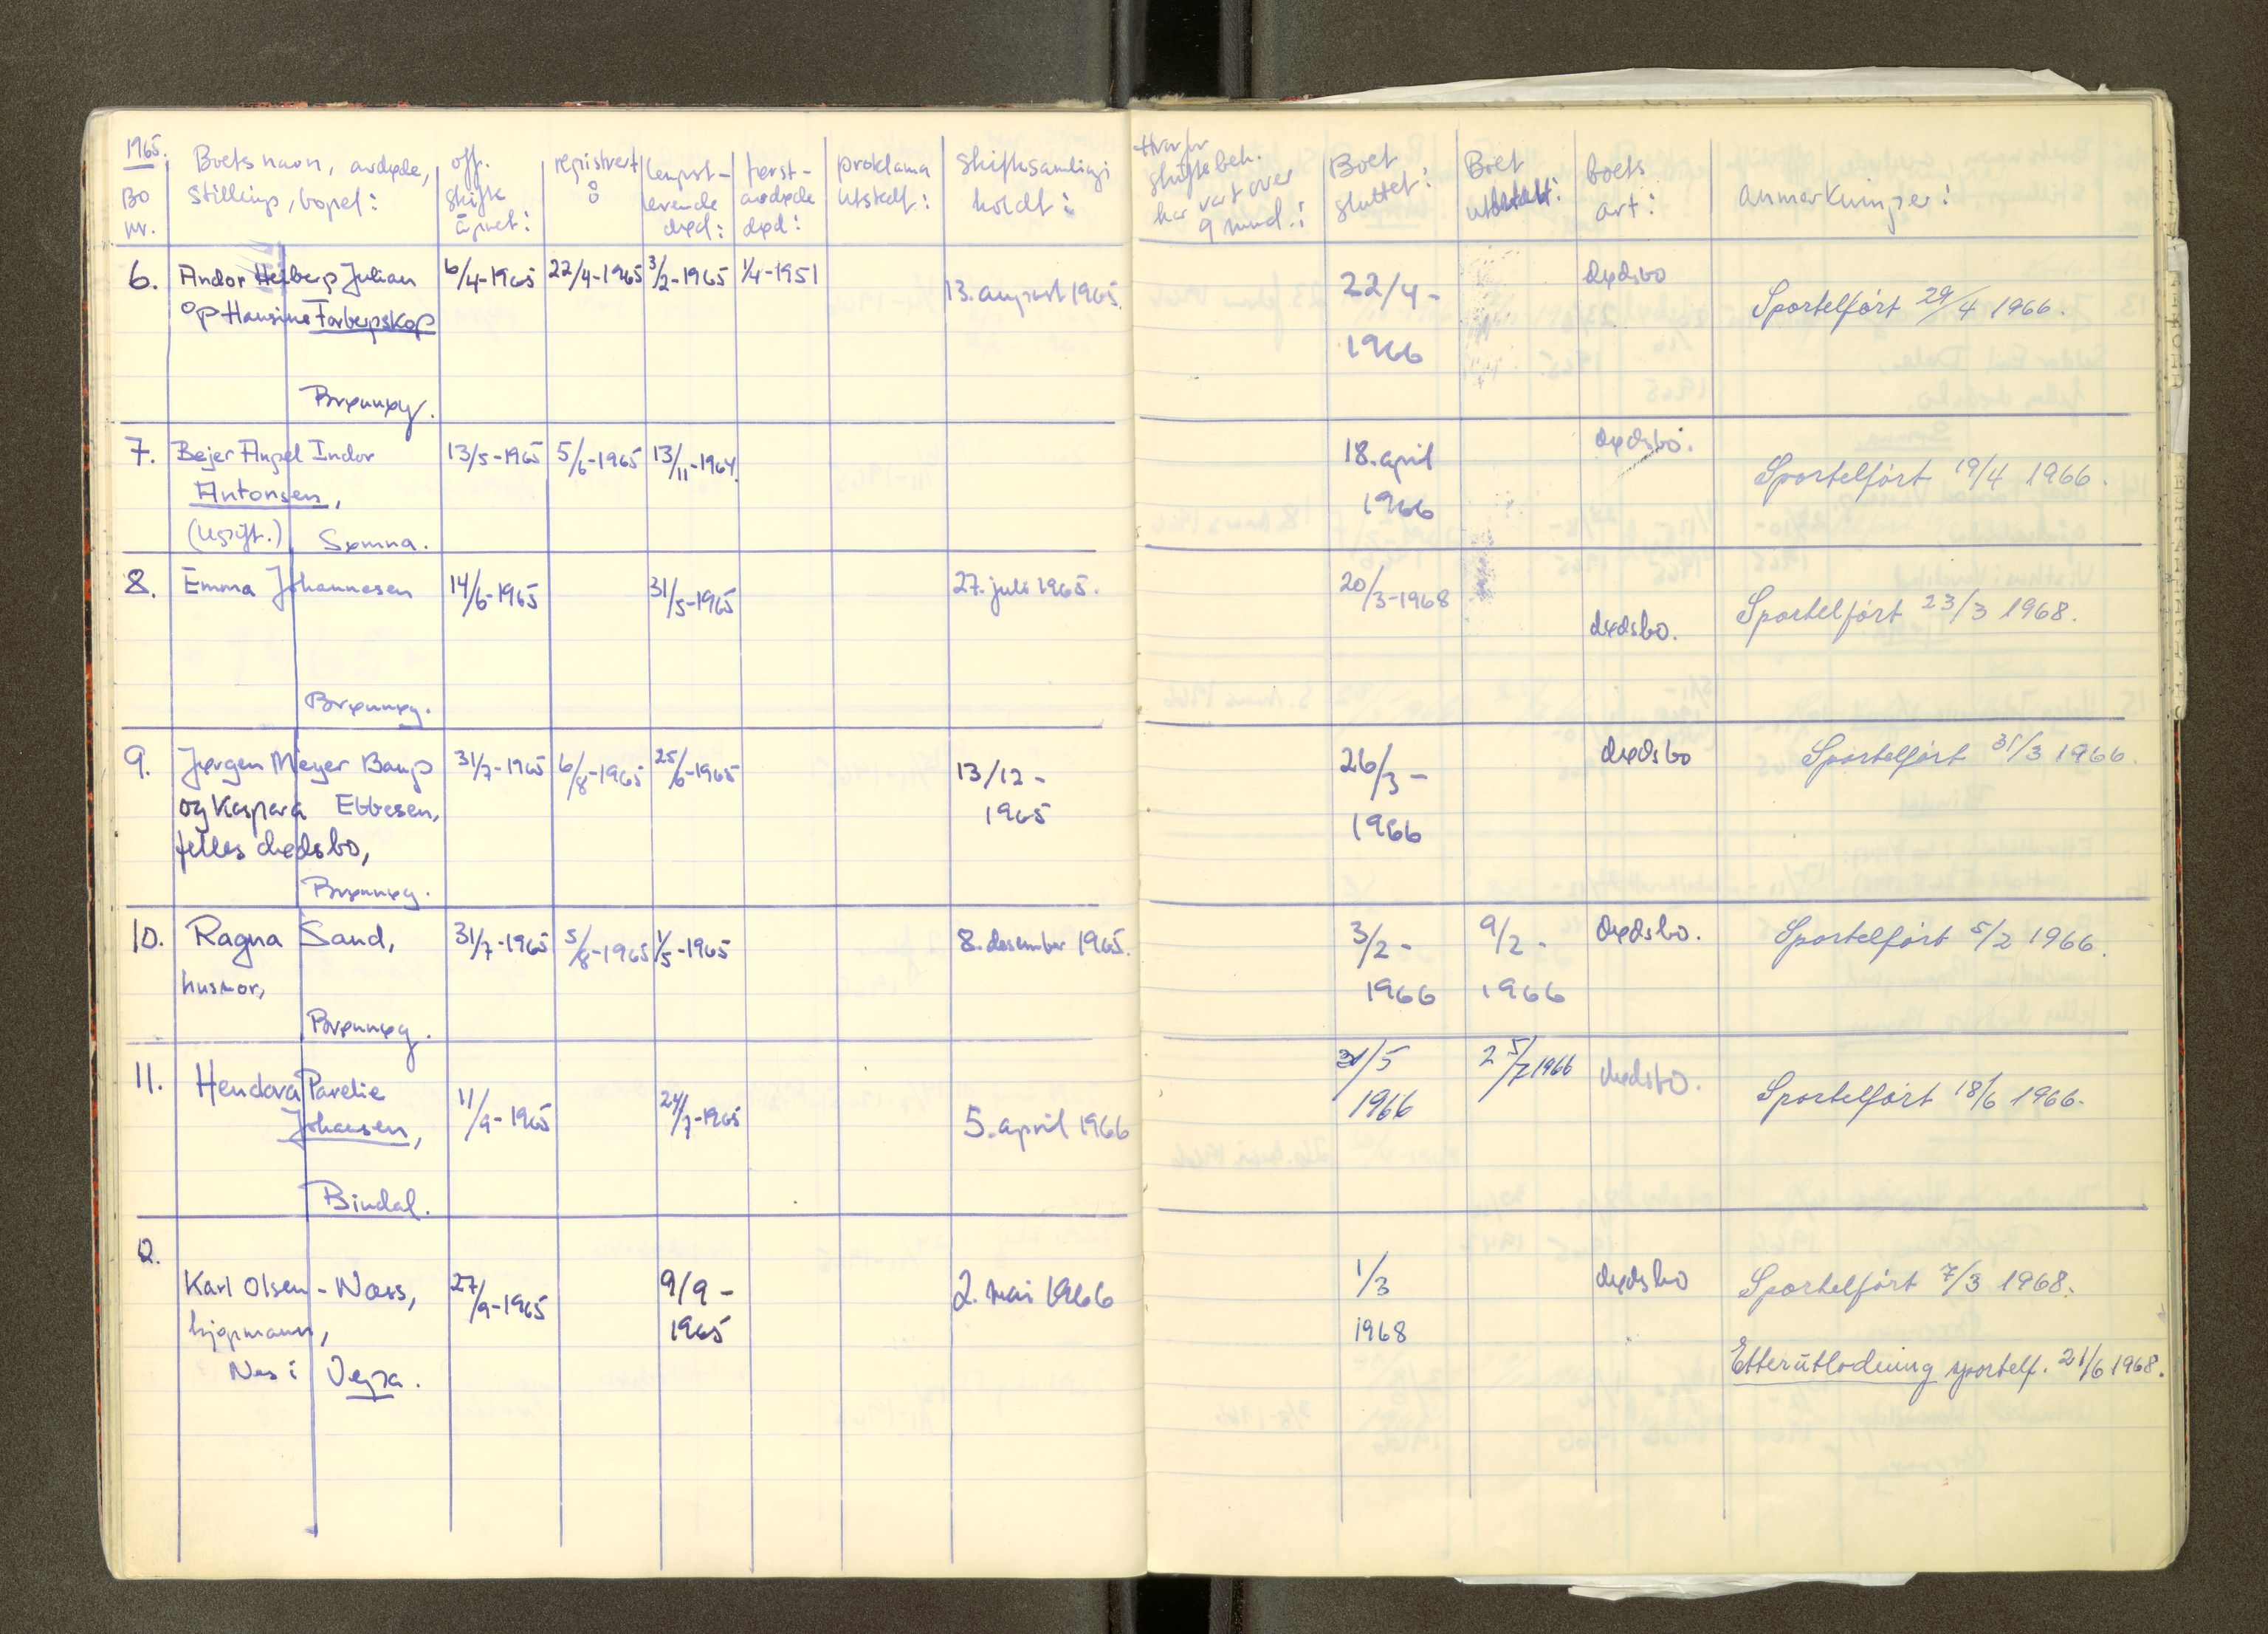 1965.
Bo nr.
Boets navn, avdøde, stilling, bopel:
off. skifte åpnet:
registrert
lengst-levende død:
først-avdøde død:
proklama utstedt:
Skiftesamlingi holdt:
Hvorfor skiftebeh. har vart over 9 mnd.:
Boet sluttet:
Boet utbetalt:
boets art:
anmerkninger:
6. Andor Heiberg Julian 6/4-1965 22/4-1965 3/2-1965 1/4-1951 13. august 1965. 22/4- dødsbo Sportelført 29/4 1966.
og Hansine Torbergskog 1966
Brønnøy.
7. Bejer Angel Indor 13/5-1965 5/6-1965 13/11-1964. 18. april dødsbo. Sportelført 19/4 1966.
Antonsen, 1966
(Ugift.) Sømna.
8. Emma Johannesen 14/6-1965 31/5-1965 27. juli 1965. 20/3-1968 dødsbo. Sportelført 23/3 1968.
Brønnøy.
9. Jørgen Meyer Baug 31/7-1965 6/8-1965 25/6-1965 13/12- 26/3- dødsbo Sportelført 31/3 1966.
og Kaspara Ebbesen, 1965 1966
felles dødsbo,
Brønnøy.
10. Ragna Sand, 31/7-1965 5/8-1965 1/5-1965 8. desember 1965. 3/2- 9/2- dødsbo. Sportelført 5/2 1966.
husmor, 1966 1966
Brønnøy.
11. Hendora Parelie 11/9-1965 24/7-1965 5. april 1966 31/5 25/7 1966 dødsbo. Sportelført 18/6 1966.
Johansen, 1966
Bindal.
12.
Karl Olsen-Næss, 27/9-1965 9/9- 2. mai 1966 1/3 dødsbo Sportelført 7/3 1968.
kjøpmann, 1965 1968
Nes i Vega. Etterutlodning sportelf. 21/6 1968.